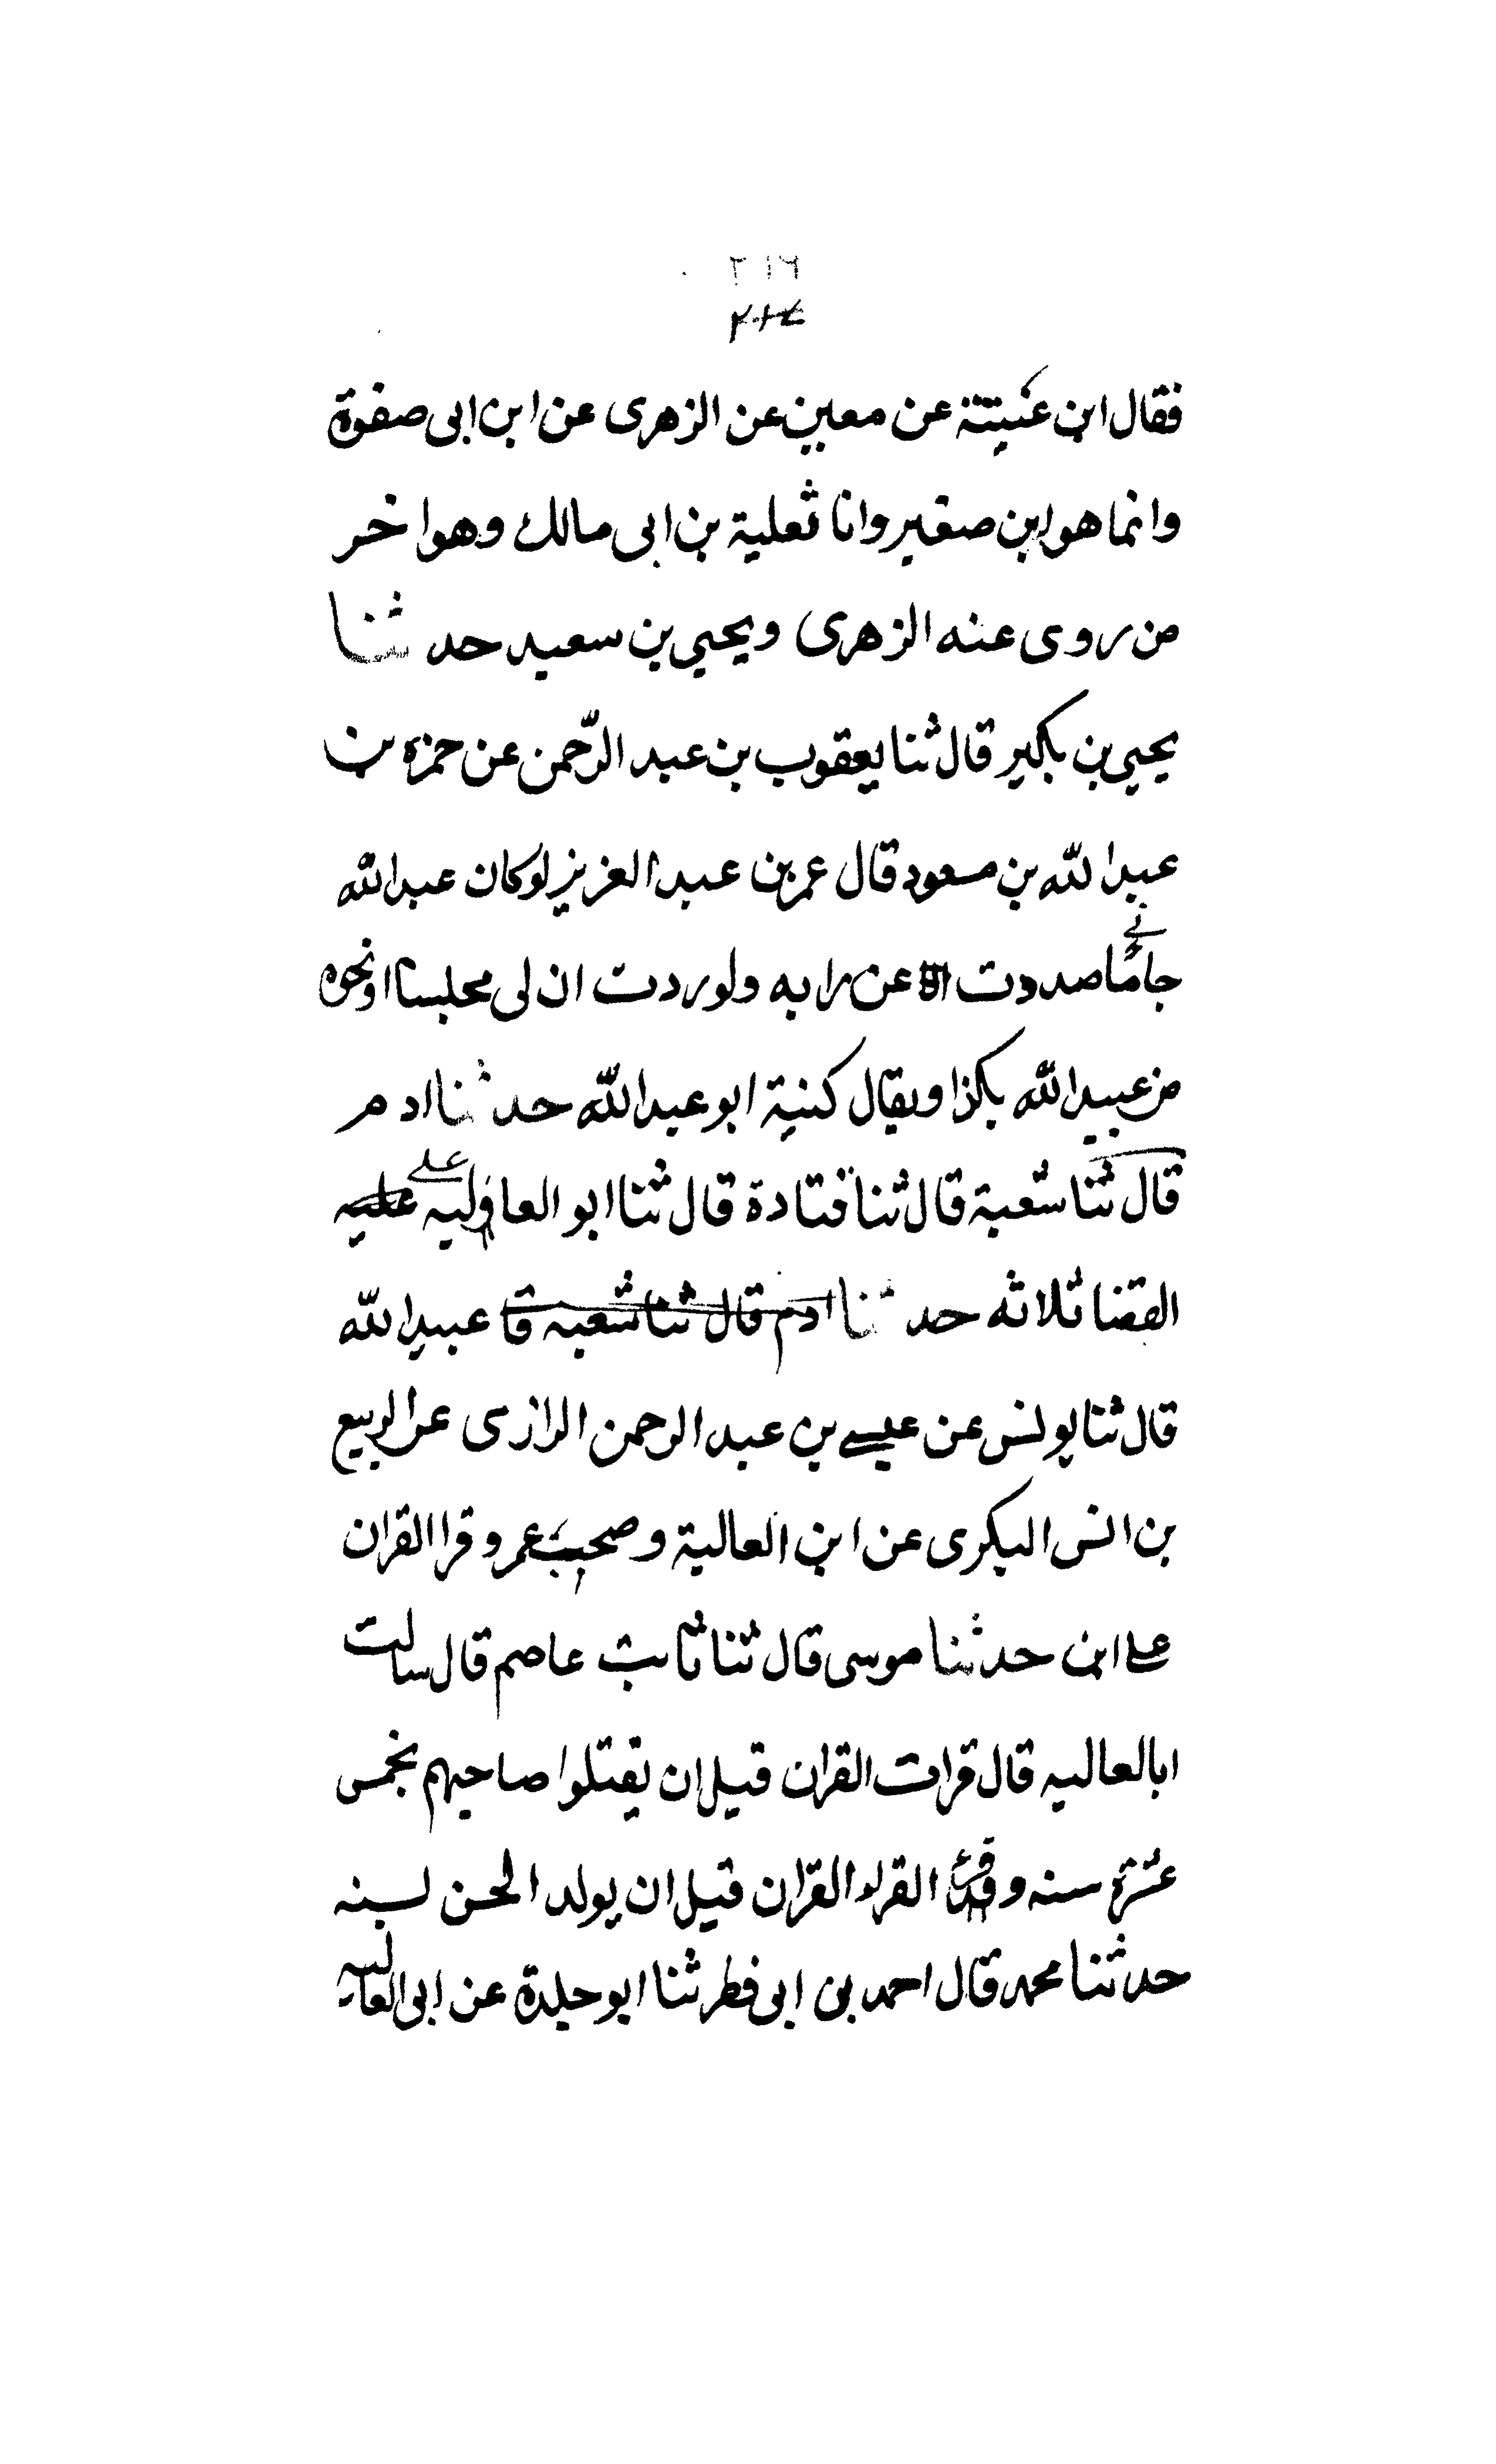 ٢١٦
فقال ابن عنيتة عن معين عن الزهرى عن ابن ابى صفوة
وانما هو ابن صغير وانا ثعلية بن ابى مالك وهو اخر
من روى عنه الزهرى ويحيي بن سعيد حدثنا
يحيي بن بكير قال ثنا يعقوب بن عبد الرّحمن عن حمزه بن
عبد الله بن مسعود قال عمر بن عبد العزيز لو كان عبد الله
ما صددت عن رايه ولوردت ان لى مجلسا اونحوه
من عبيد الله بكذا ويقال كنية ابو عبد الله حدثنا ادم
قال ثنا شعبة قال ثنا قتادة قال ثنا ابو العاليه على
القضا ثلاثه حدثنا ادم قال ثنا شعبه قا عبيد الله
قال ثنا يونس عن عيسے بن عبد الرحمن الرازى عن الربيع
بن انس البكرى عن ابن العالية وصحب عمر وقرا القران
على ابن حدثنا موسى قال ثنا ثابت عاصم قال سالت
ابا العاليه قال قرات القران قيل ان يقتلوا صاحبهم بخمس
عشرة سنه و القراء القران قيل ان يولد الحسن لسنه
حدثنا محمد قال احمد بن ابى فطر ثنا ابو حلدة عن ابى العاليه